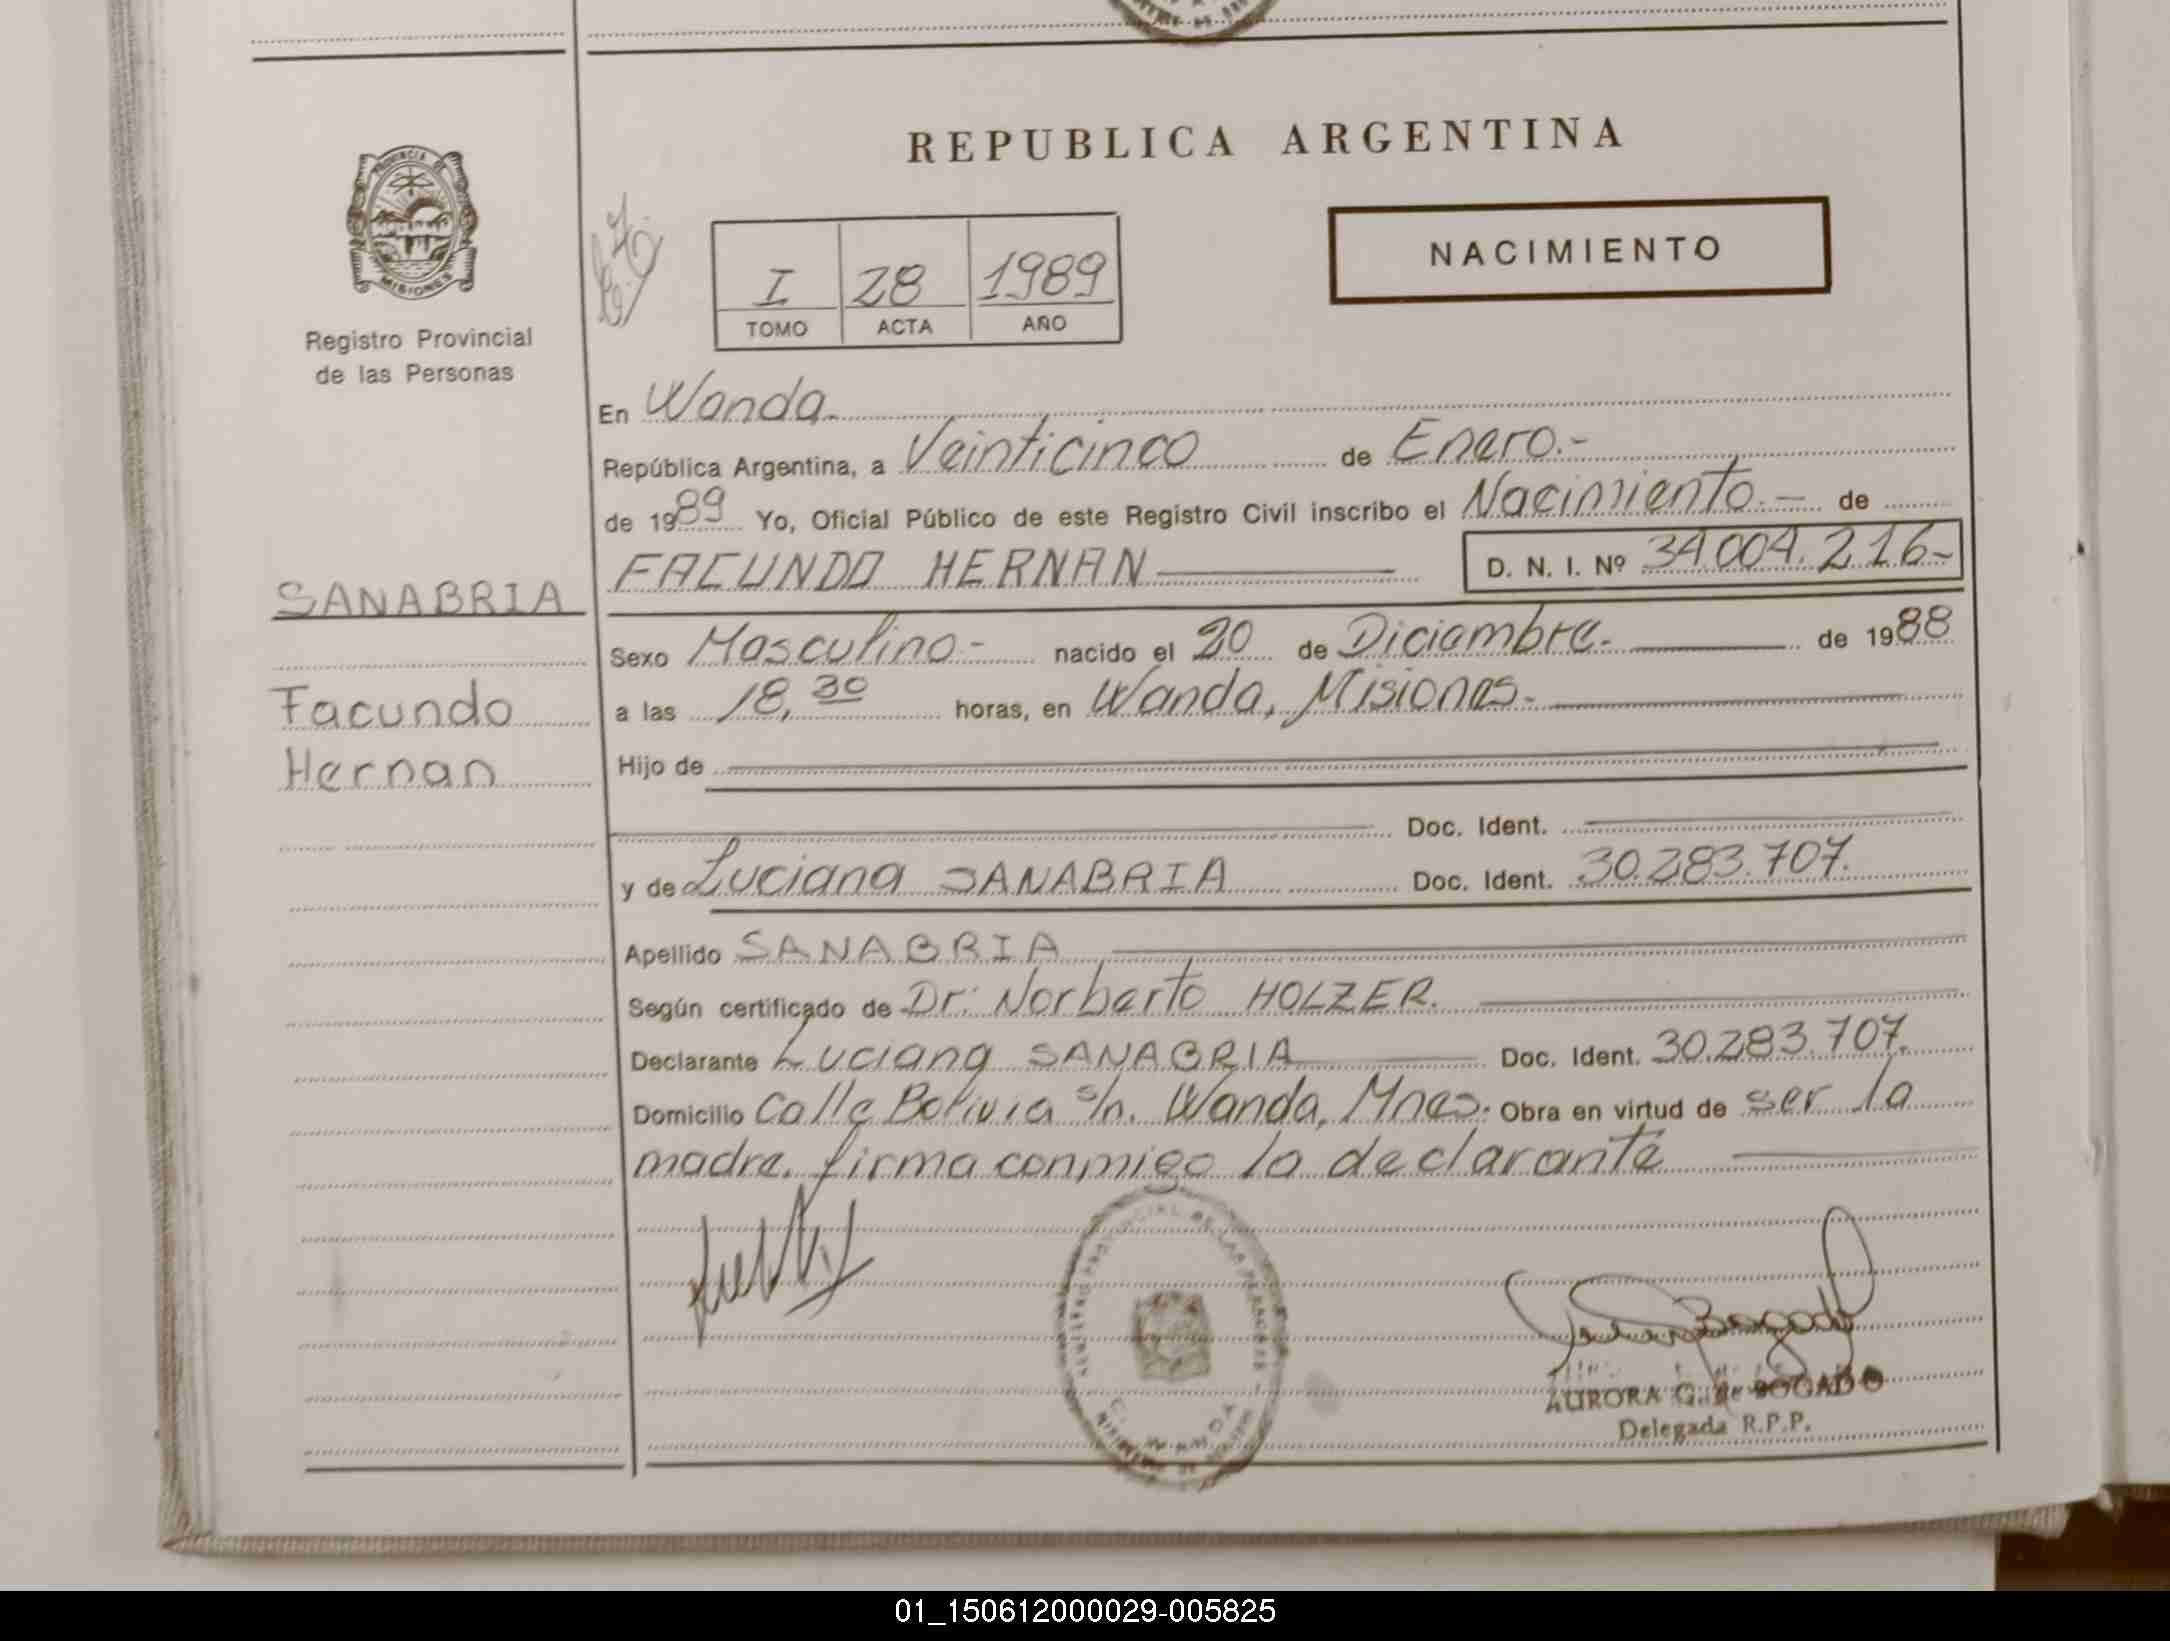 REPUBLICA ARGENTINA
PROVINCIA DE
MISIONES
Registro Provincial
de las Personas
NACIMIENTO
I 28 1989
TOMO ACTA AÑO
En Wanda.
República Argentina, a Veinticinco de Enero.-
de 1989 Yo, Oficial Público de este Registro Civil inscribo el Nacimiento.- de
FACUNDO HERNAN D. N. I. Nº 34.004.216-
SANABRIA
Facundo
Hernan
Sexo Masculino- nacido el 20 de Diciembre. de 1988
a las 18,30 horas, en Wanda, Misiones-
Hijo de
Doc. Ident.
y de Luciana SANABRIA Doc. Ident. 30.283.707.
Apellido SANABRIA
Según certificado de Dr. Norberto HOLZER.
Declarante Luciana SANABRIA Doc. Ident. 30.283.707.
Domicilio Calle Bolivia s/n. Wanda, Mnes. Obra en virtud de ser la
madre. firma conmigo la declarante
WANDA
AURORA G. de BOGADO
Delegada R.P.P.
01_150612000029-005825